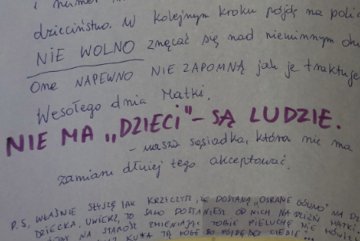 i numer
dzieciństwo. W kolejnym kroku pójdę na poli
NIE WOLNO znęcać się nad niewinnym
One NAPEWNO NIE ZAPOMNĄ jak je traktuje
Wesołego dnia Matki.
NIE MA „DZIECI" - SĄ LUDZIE.
- wasza sąsiadka, która nie ma
zamiaru dłużej tego akceptować.
P.S. WŁAŚNIE SŁYSZĘ JAK KRZYCZYSZ, ŻE DOSTANIESZ „OSRANE GÓWNO" NA
DZIECKA. UWIERZ, TO SAMO DOSTANIESZ OD NICH NA DZIEŃ MATKI
NA STAROŚĆ ZMIENIAJĄC TOBIE PIELUCHĘ NIE